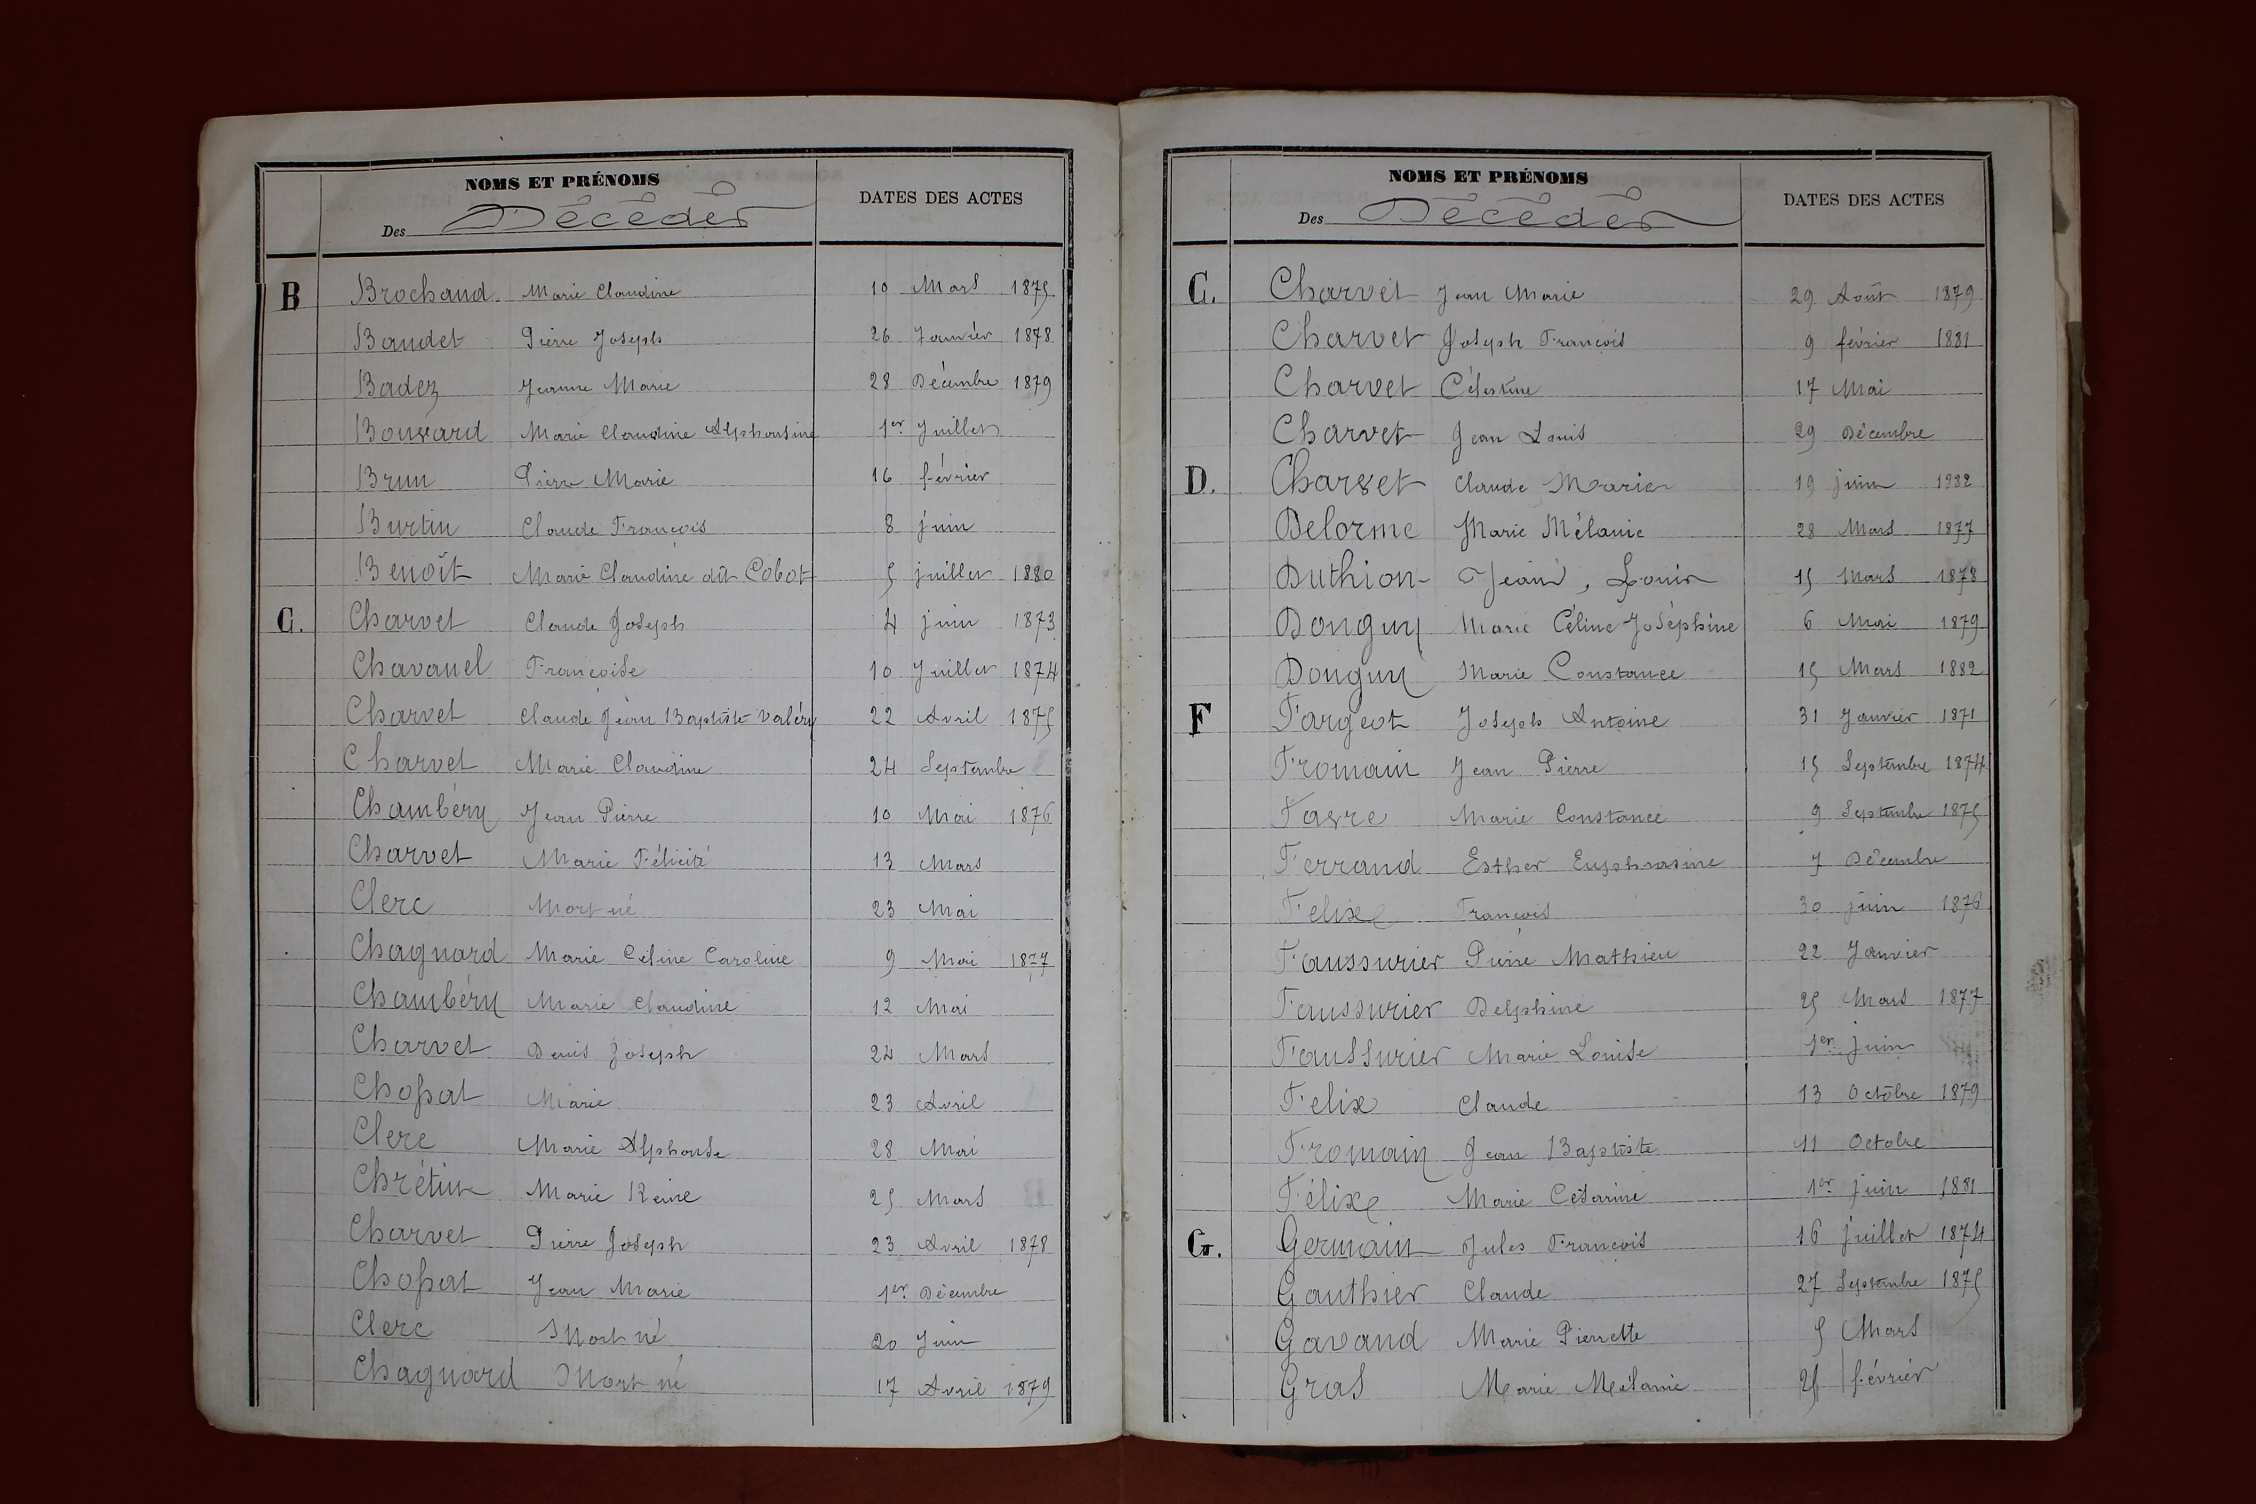 NOMS ET PRÉNOMS
Des Décédés
DATES DES ACTES
B Brochand Marie Claudine 10 Mars 1875
Baudet Pierre Joseph 26 Janvier 1878
Badez Jeanne Marie 28 Décembre 1879
Bouvard Marie Claudine Alphonsine 1er Juillet
Brun Pierre Marie 16 février
Burtin Claude François 8 juin
Benoît Marie Claudine dit Cobot 5 juillet 1880
C. Charvet Claude Joseph 4 juin 1873
Chavanel Françoise 10 Juillet 1874
Charvet Claude Jean Baptiste Valéry 22 Avril 1875
Charvet Marie Claudine 24 Septembre
Chambéry Jean Pierre 10 Mai 1876
Charvet Marie Félicité 13 Mars
Clerc Mort né 23 Mai
Chagnard Marie Céline Caroline 9 Mai 1877
Chambéry Marie Claudine 12 Mai
Charvet Denis Joseph 24 Mars
Chopat Marie 23 Avril
Clerc Marie Alphonse 28 Mai
Chrétin Marie Reine 25 Mars
Charvet Pierre Joseph 23 Avril 1878
Chopat Jean Marie 1er Décembre
Clerc Mort né 20 Juin
Chagnard Mort né 17 Avril 1879
NOMS ET PRÉNOMS
Des Décédés
DATES DES ACTES
C. Charvet Jean Marie 29 Août 1879
Charvet Joseph François 9 février 1881
Charvet Célestine 17 Mai
Charvet Jean Louis 29 Décembre
D. Charvet Claude Marie 19 juin 1882
Delorme Marie Mélanie 28 Mars 1877
Duthion Jean, Louis 15 Mars 1878
Donguy Marie Céline Joséphine 6 Mai 1879
Donguy Marie Constance 15 Mars 1882
F Fargeot Joseph Antoine 31 Janvier 1871
Fromain Jean Pierre 15 Septembre 1874
Favre Marie Constance 9 Septembre 1875
Ferrand Esther Euphrasine 7 Décembre
Felix François 30 juin 1876
Faussurier Pierre Mathieu 22 Janvier
Faussurier Delphine 25 Mars 1877
Faussurier Marie Louise 1er juin
Felix Claude 13 Octobre 1879
Fromain Jean Baptiste 11 Octobre
Félix Marie Césarine 1er juin 1881
G. Germain Jules François 16 Juillet 1874
Gauthier Claude 27 Septembre 1875
Gavand Marie Pierrette 5 Mars
Gras Marie Mélanie 25 février